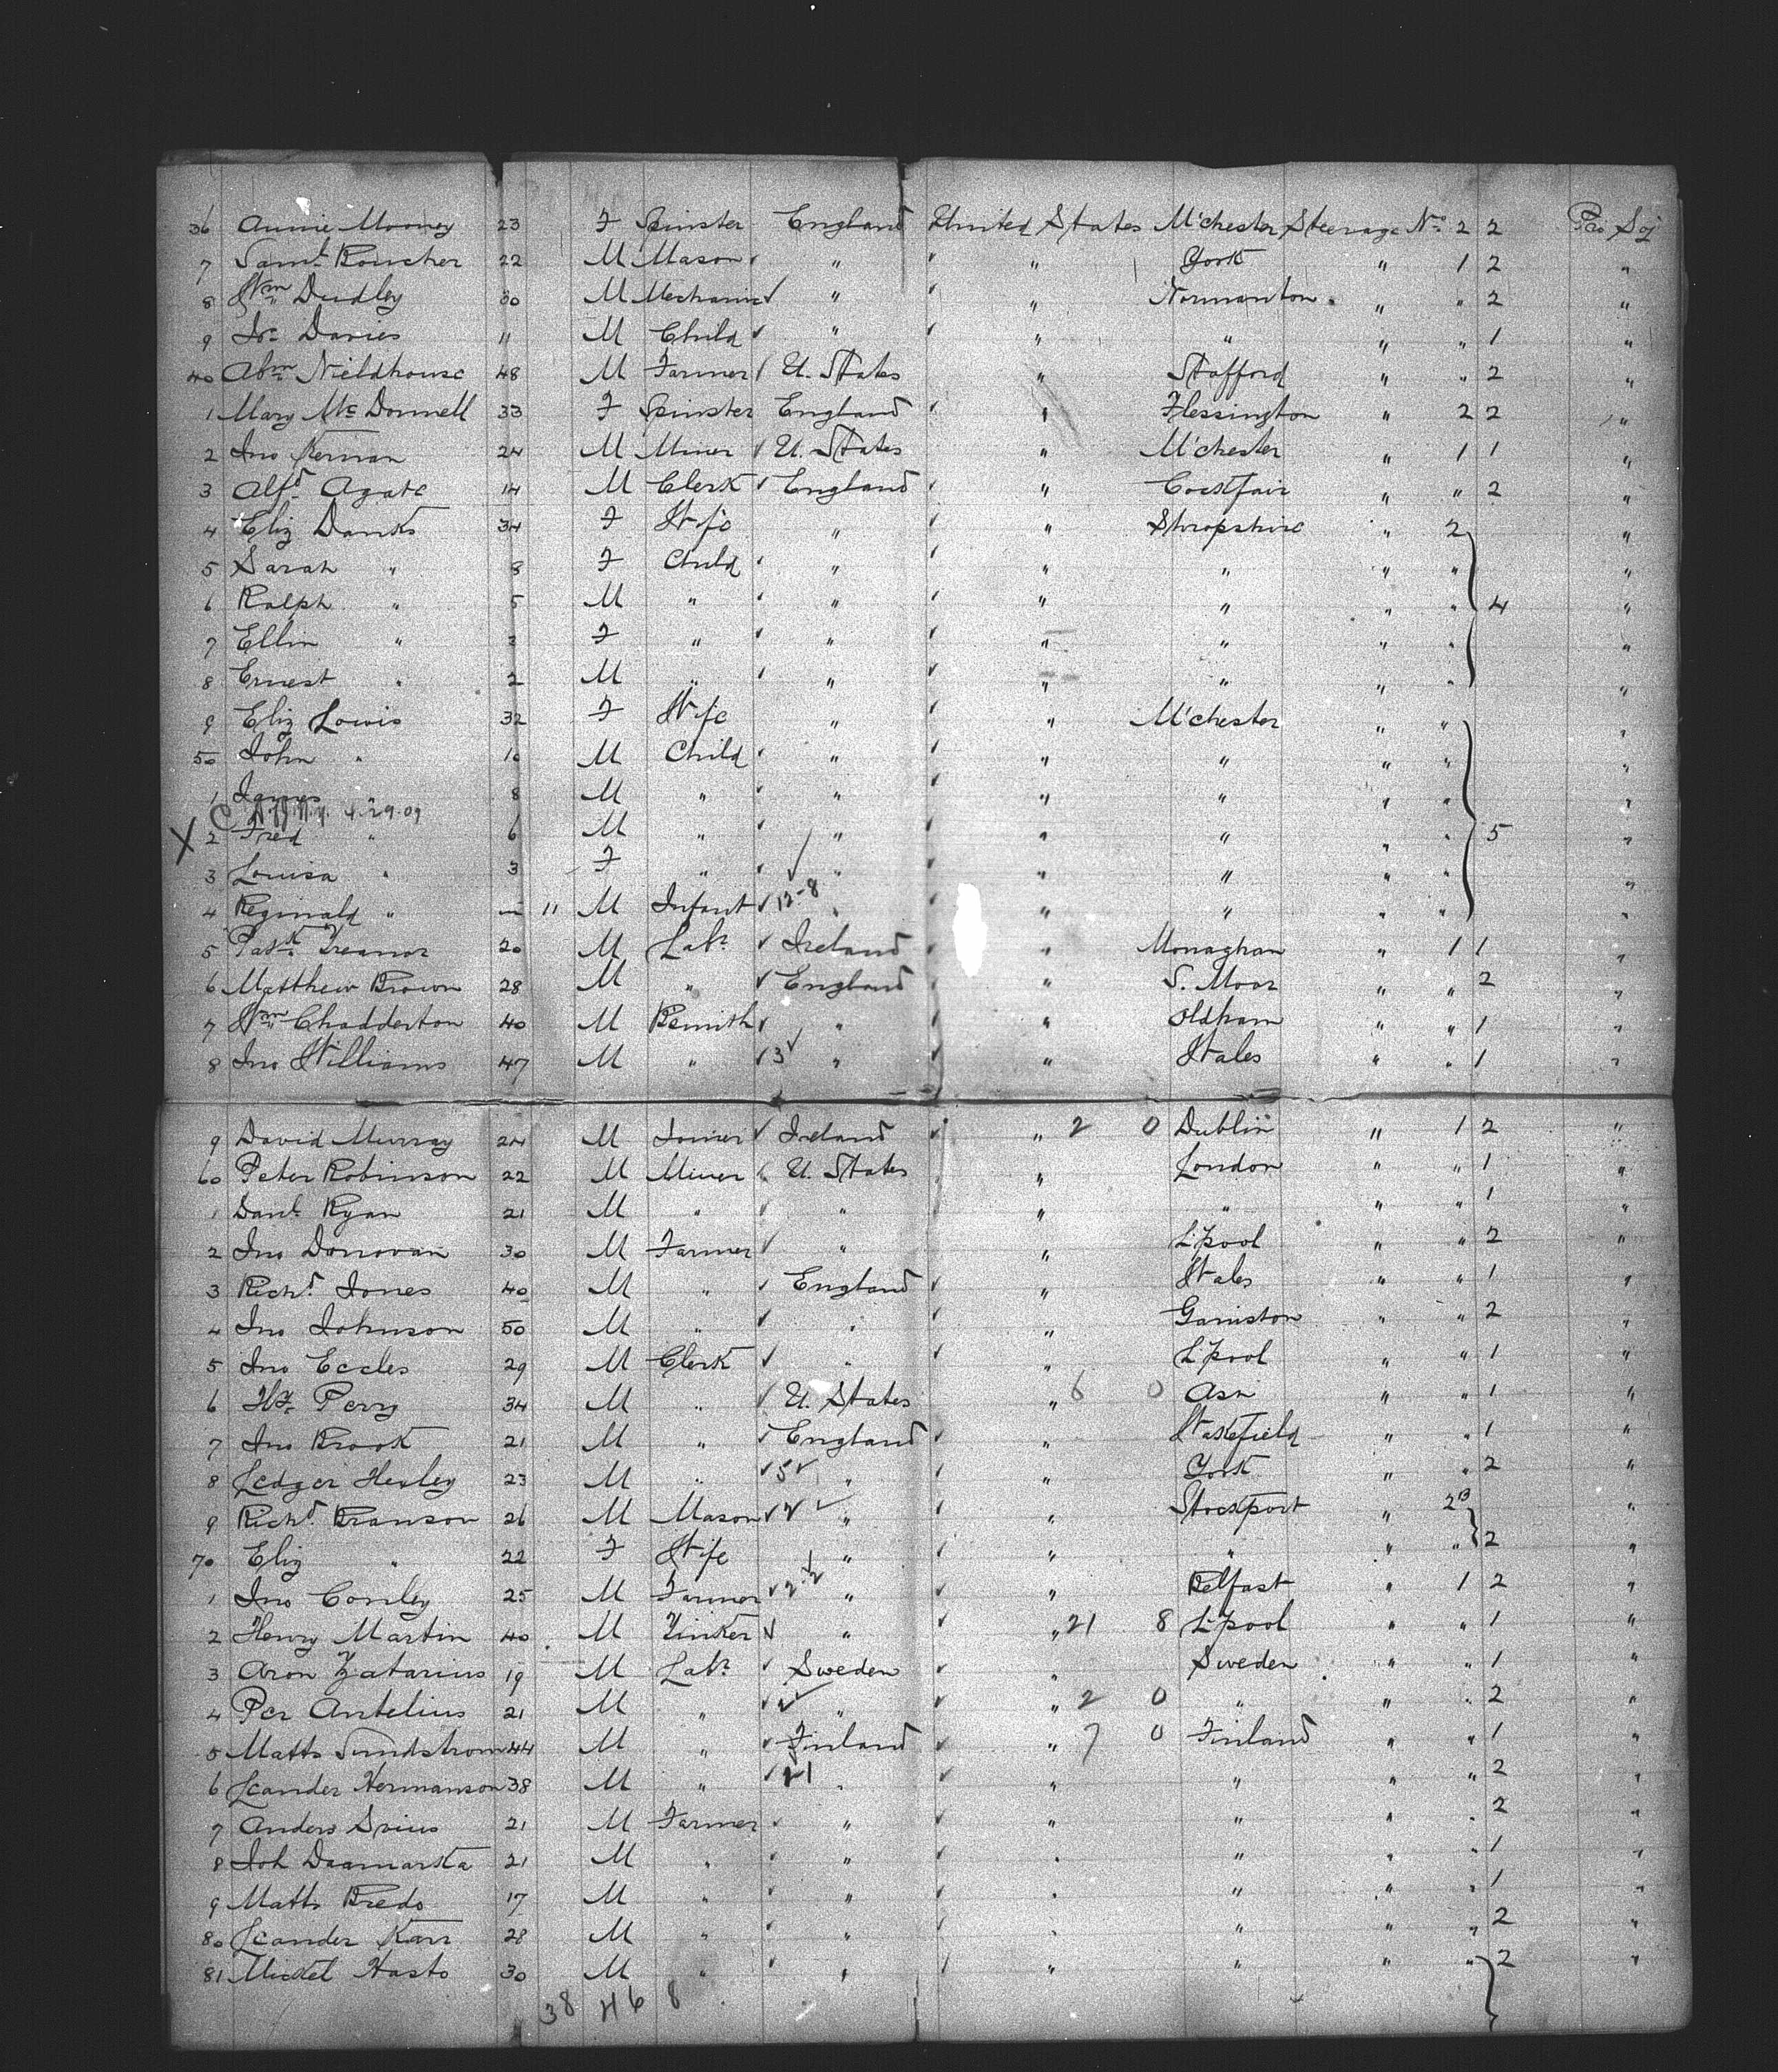 36 Annie Mooney 23 F Spinster England United States M'chester Steerage No 2 2 Pro Soj
7 Saml Boucher 22 M Mason " " York " 1 2 "
8 Wm Dudley 30 M Mechanic " " Normanton " " 2 "
9 Jno Davies 11 M Child " " " " " 1 "
40 Abm Nieldhouse 48 M Farmer U. States " Stafford " " 2 "
1 Mary McDonnell 33 F Spinster England " Flessington " 2 2 "
2 Jno Kernan 24 M Miner U. States " M'chester " 1 1 "
3 Alfd Agate 14 M Clerk England " " " 2 "
4 Eliz Danks 34 F Wife " " Shropshire " 2 "
5 Sarah " 8 F Child " " " " " "
6 Ralph " 5 M " " " " " " 4 "
7 Ellin " 3 F " " " " " " "
8 Ernest " 2 M " " " " " " "
9 Eliz Lewis 32 F Wife " " M'chester " " "
50 John " 10 M Child " " " " " "
1 James " 8 M " " " " " " "
C 4.29.09
X 2 Fred " 6 M " " " " " " 5 "
3 Louisa " 3 F " " " " " " "
4 Reginald " 11 M Infant 12-8 " " " " " "
5 Patk Treanor 20 M Labr Ireland " Monaghan " 1 1 "
6 Matthew Brown 28 M " England " S. Moor " " 2 "
7 Wm Chadderton 40 M Bsmith " " Oldham " " 1 "
8 Jno Williams 47 M " 3 " " Wales " " 1 "
9 David Murray 24 M Joiner Ireland " 2 0 Dublin " 1 2 "
60 Peter Robinson 22 M Miner U. States " London " " 1 "
1 Danl Ryan 21 M " " " " " " 1 "
2 Jno Donovan 30 M Farmer " " L'pool " " 2 "
3 Richd Jones 40 M " England " Wales " " 1 "
4 Jno Johnson 50 M " " " Garriston " " 2 "
5 Jno Eccles 29 M Clerk " " L'pool " " 1 "
6 Perry 34 M " U. States " 6 0 Ash " " 1 "
7 Jno Brook 21 M " England " Wakefield " " 1 "
8 Ledger Hexley 23 M " 5 " " York " " 2 "
9 Richd Branson 26 M Mason " " Stockport " 2 "
70 Eliz " 22 F Wife " " " " " 2 "
1 Jno Conley 25 M Farmer 2-2 " " Belfast " 1 2 "
2 Henry Martin 40 M Tinker " " 21 8 L'pool " " 1 "
3 Aron Zatarius 19 M Labr Sweden " Sweden " " 1 "
4 Per Antelius 21 M " " " 2 0 " " " 2 "
5 Matts Sundstrom 44 M " Finland " 7 0 Finland " " 1 "
6 Leander Hermanson 38 M " " " " " " 2 "
7 Anders Svius 21 M Farmer " " " " " 2 "
8 Joh Daamarka 21 M " " " " " " 1 "
9 Matts Bredo 17 M " " " " " " 1 "
80 Leander Karr 28 M " " " " " " 2 "
81 Mickel Hasto 30 M " " " " " " 2 "
38 46 8